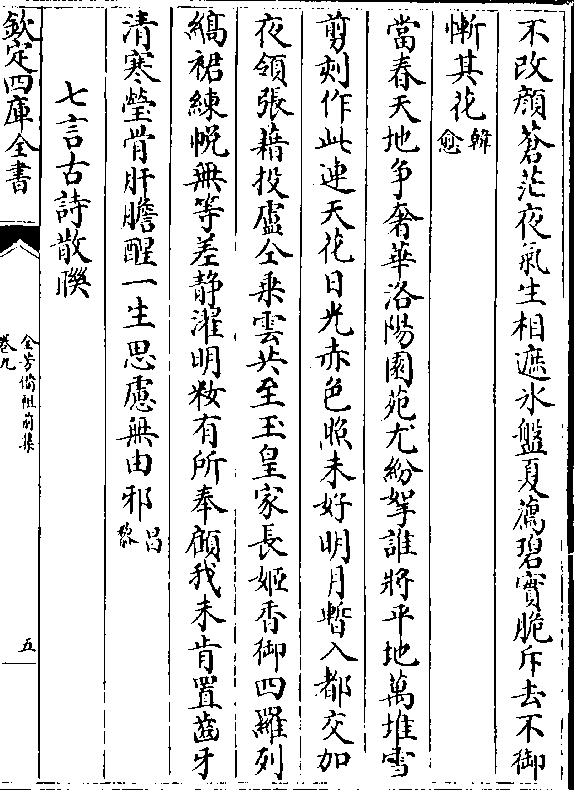 不改顔蒼茫夜氣生相遮氷盤夏薦碧實脆斥去不御
慚其花韓愈
當春天地争奢華洛陽園苑尤紛拏誰將平地萬堆雪
剪刻作此連天花日光赤色照未好明月暫入都交加
夜領張籍投盧仝乗雲共至玉皇家長姬香御四羅列
縞裙練帨無等差静濯明粧有所奉顧我未肯置齒牙
清寒瑩骨肝膽醒一生思慮無由邪昌黎
七言古詩散聨
欽定四庫全書
全芳備祖前集
卷九
五